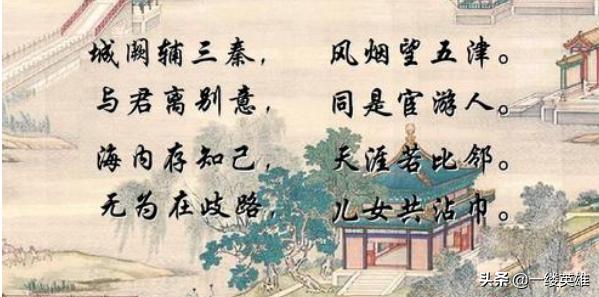 城阙辅三秦， 风烟望五津。
与君离别意， 同是宦游人。
海内存知己， 天涯若比邻。
无为在歧路， 儿女共沾巾。
头条@一缕英雄